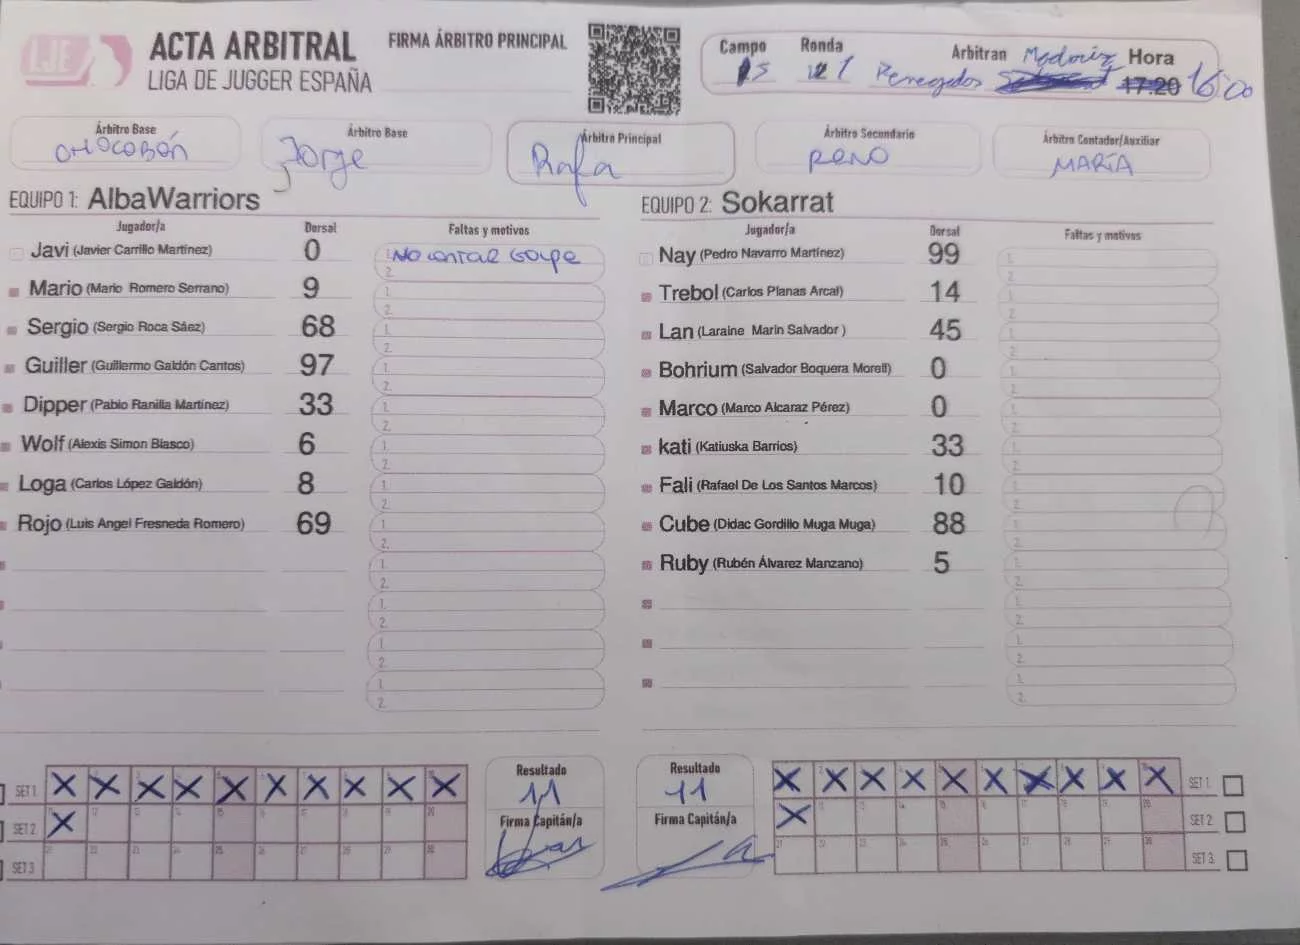 LJE
ACTA ARBITRAL
LIGA DE JUGGER ESPAÑA
FIRMA ÁRBITRO PRINCIPAL
Campo Ronda Arbitran Hora
5 1 Renegados 17:20 16:00
Árbitro Base Árbitro Base Árbitro Principal Árbitro Secundario Árbitro Contador/Auxiliar
CHOCOBÓN Jorge Rafa RENO MARÍA
EQUIPO 1: AlbaWarriors
Jugador/a Dorsal Faltas y motivos
Javi (Javier Carrillo Martínez) 0 1. No contar Golpe
2.
Mario (Mario Romero Serrano) 9 1.
2.
Sergio (Sergio Roca Sáez) 68 1.
2.
Guiller (Guillermo Galdón Cantos) 97 1.
2.
Dipper (Pablo Ranilla Martínez) 33 1.
2.
Wolf (Alexis Simon Blasco) 6 1.
2.
Loga (Carlos López Galdón) 8 1.
2.
Rojo (Luis Angel Fresneda Romero) 69 1.
2.
1.
2.
1.
2.
1.
2.
1.
2.
EQUIPO 2: Sokarrat
Jugador/a Dorsal Faltas y motivos
Nay (Pedro Navarro Martínez) 99 1.
2.
Trebol (Carlos Planas Arcal) 14 1.
2.
Lan (Laraine Marin Salvador ) 45 1.
2.
Bohrium (Salvador Boquera Morell) 0 1.
2.
Marco (Marco Alcaraz Pérez) 0 1.
2.
kati (Katiuska Barrios) 33 1.
2.
Fali (Rafael De Los Santos Marcos) 10 1.
2.
Cube (Didac Gordillo Muga Muga) 88 1.
2.
Ruby (Rubén Álvarez Manzano) 5 1.
2.
1.
2.
1.
2.
1.
2.
SET 1. X X X X X X X X X X
SET 2. X 12 13 14 15 16 17 18 19 20
SET 3. 21 22 23 24 25 26 27 28 29 30
Resultado
11
Firma Capitán/a
Resultado
11
Firma Capitán/a
X X X X X X X X X X SET 1.
X 12 13 14 15 16 17 18 19 20 SET 2.
21 22 23 24 25 26 27 28 29 30 SET 3.